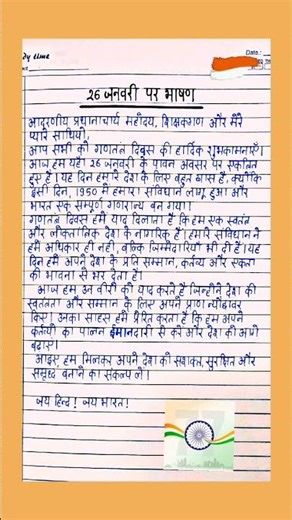 dy time
Date.:
26 जनवरी पर भाषण
आदरणीय प्रधानाचार्य महोदय, शिक्षकगण और मेरे
प्यारे साथियों,
आप सभी को गणतंत्र दिवस की हार्दिक शुभकामनाएँ।
आज हम यहाँ 26 जनवरी के पावन अवसर पर एकत्रित
हुए हैं। यह दिन हमारे देश के लिए बहुत खास है, क्योंकि
इसी दिन, 1950 में हमारा संविधान लागू हुआ और
भारत एक सम्पूर्ण गणराज्य बन गया।
गणतंत्र दिवस हमें याद दिलाता है कि हम एक स्वतंत्र
और लोकतांत्रिक देश के नागरिक हैं। हमारे संविधान ने
हमें अधिकार ही नहीं, बल्कि जिम्मेदारियाँ भी दी हैं। यह
दिन हमें अपने देश के प्रति सम्मान, कर्तव्य और एकता
की भावना से भर देता है।
आज हम उन वीरों को याद करते हैं जिन्होंने देश की
स्वतंत्रता और सम्मान के लिए अपने प्राण न्यौछावर
किए। उनका साहस हमें प्रेरित करता है कि हम अपने
कर्तव्यों का पालन ईमानदारी से करें और देश को आगे
बढ़ाएं।
आइए, हम मिलकर अपने देश को सशक्त, सुरक्षित और
समृद्ध बनाने का संकल्प लें।
जय हिन्द! जय भारत!